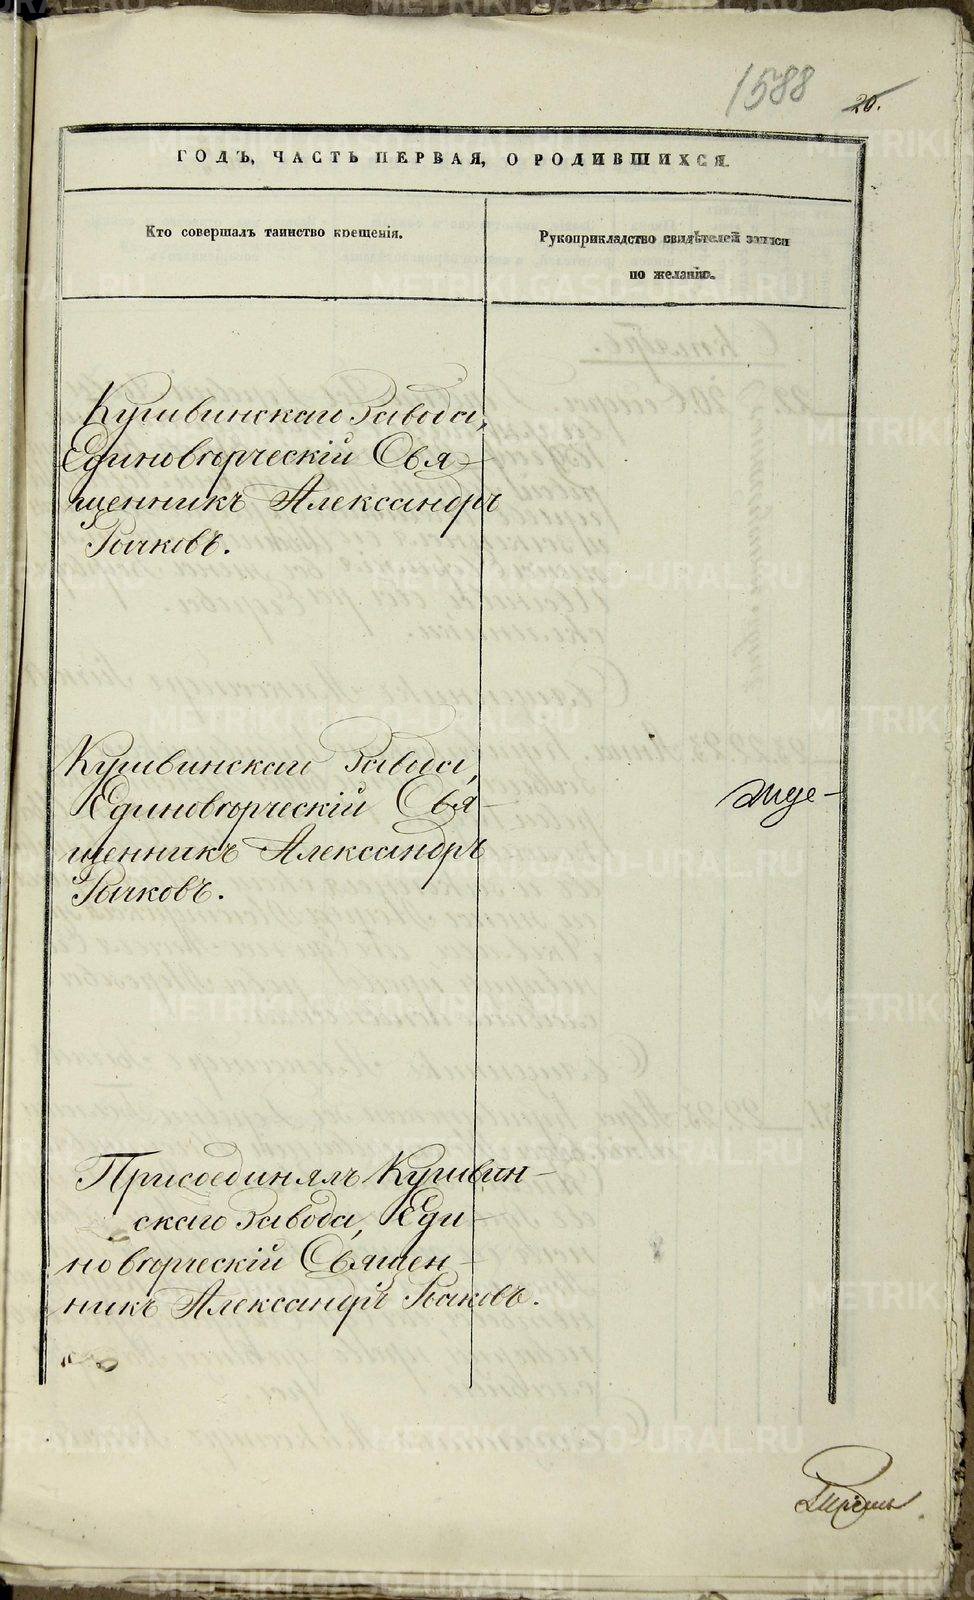 1588 20.
ГОДЪ, ЧАСТЬ ПЕРВАЯ, О РОДИВШИХСЯ.
Кто совершалъ таинство крещенія.
Рукоприкладство свидѣтелей записи
по желанію.
Кушвинскаго Завода,
Единовѣрческій Свя-
щенникъ Александръ
Рычковъ.
Кушвинскаго Завода,
Единовѣрческій Свя-
щенникъ Александръ
Рычковъ.
Присоединялъ Кушвин-
скаго Завода, Еди-
новѣрческій Священ-
никъ Александръ Рычковъ.
METRIKI.GASO-URAL.RU